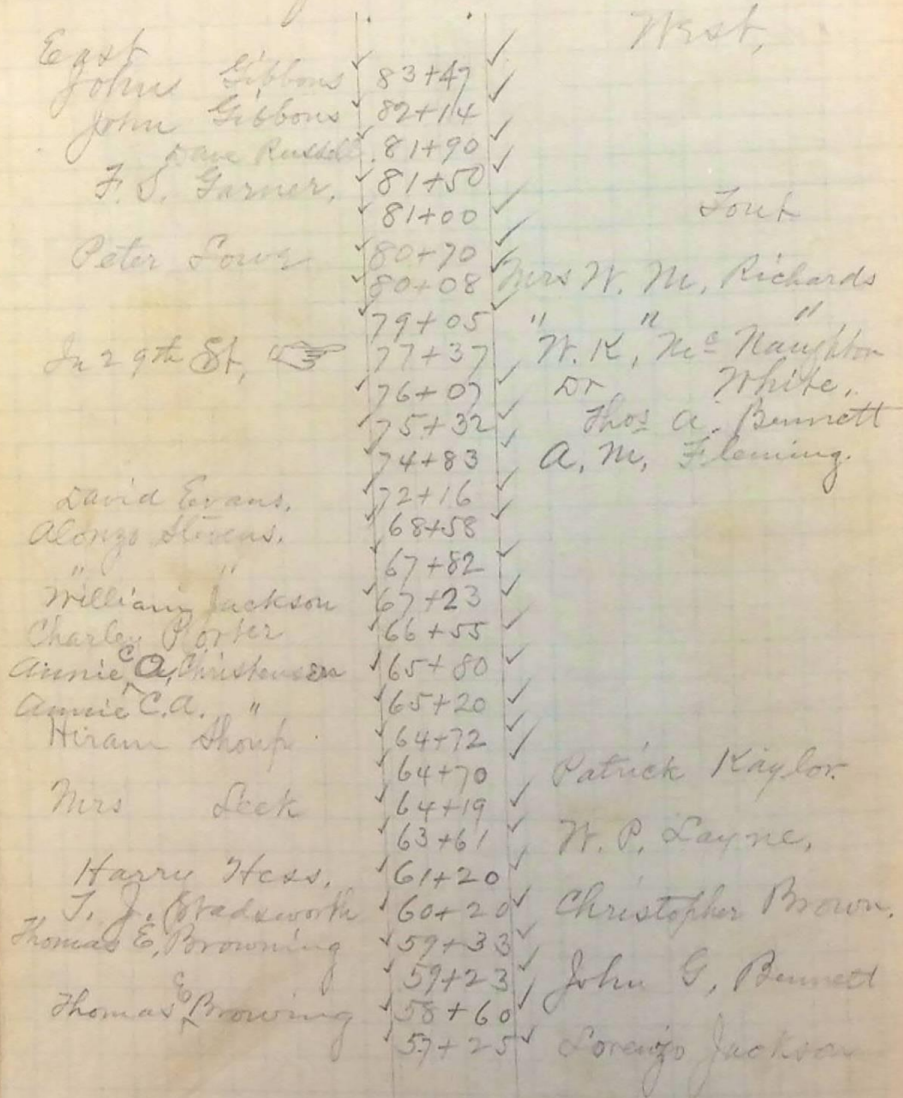 East West,
John Gibbons ✓ 83+47 ✓
John Gibbons ✓ 82+14 ✓
Dave Russell ✓ 81+90 ✓
F. S. Garner, ✓ 81+50 ✓
✓ 81+00 ✓ Fout
Peter Lowe ✓ 80+70 ✓
✓ 80+08 ✓ Mrs W. M. Richards
✓ 79+05 ✓ " " "
In 29th St, ☞ 77+37 ✓ W. K. Mc Naughton
✓ 76+07 ✓ Dr White,
✓ 75+32 ✓ Thos A. Bennett
✓ 74+83 ✓ A. M. Fleming.
David Evans, ✓ 72+16 ✓
Alonzo Stevens, ✓ 68+58 ✓
" " ✓ 67+82 ✓
William Jackson ✓ 67+23 ✓
Charley Porter ✓ 66+55 ✓
Annie C A. Christensen ✓ 65+80 ✓
Annie C.A. " ✓ 65+20 ✓
Hiram Shoup ✓ 64+72 ✓
64+70 ✓ Patrick Kaylor.
Mrs Leek ✓ 64+19 ✓
63+61 ✓ W. P. Layne,
Harry Hess, ✓ 61+20
T. J. Wadsworth ✓ 60+20 ✓ Christopher Brown.
Thomas E, Browning ✓ 59+33 ✓
59+23 ✓ John G, Bennett
Thomas E Browing ✓ 58+60 ✓
✓ 57+25 ✓ Lorenzo Jackson